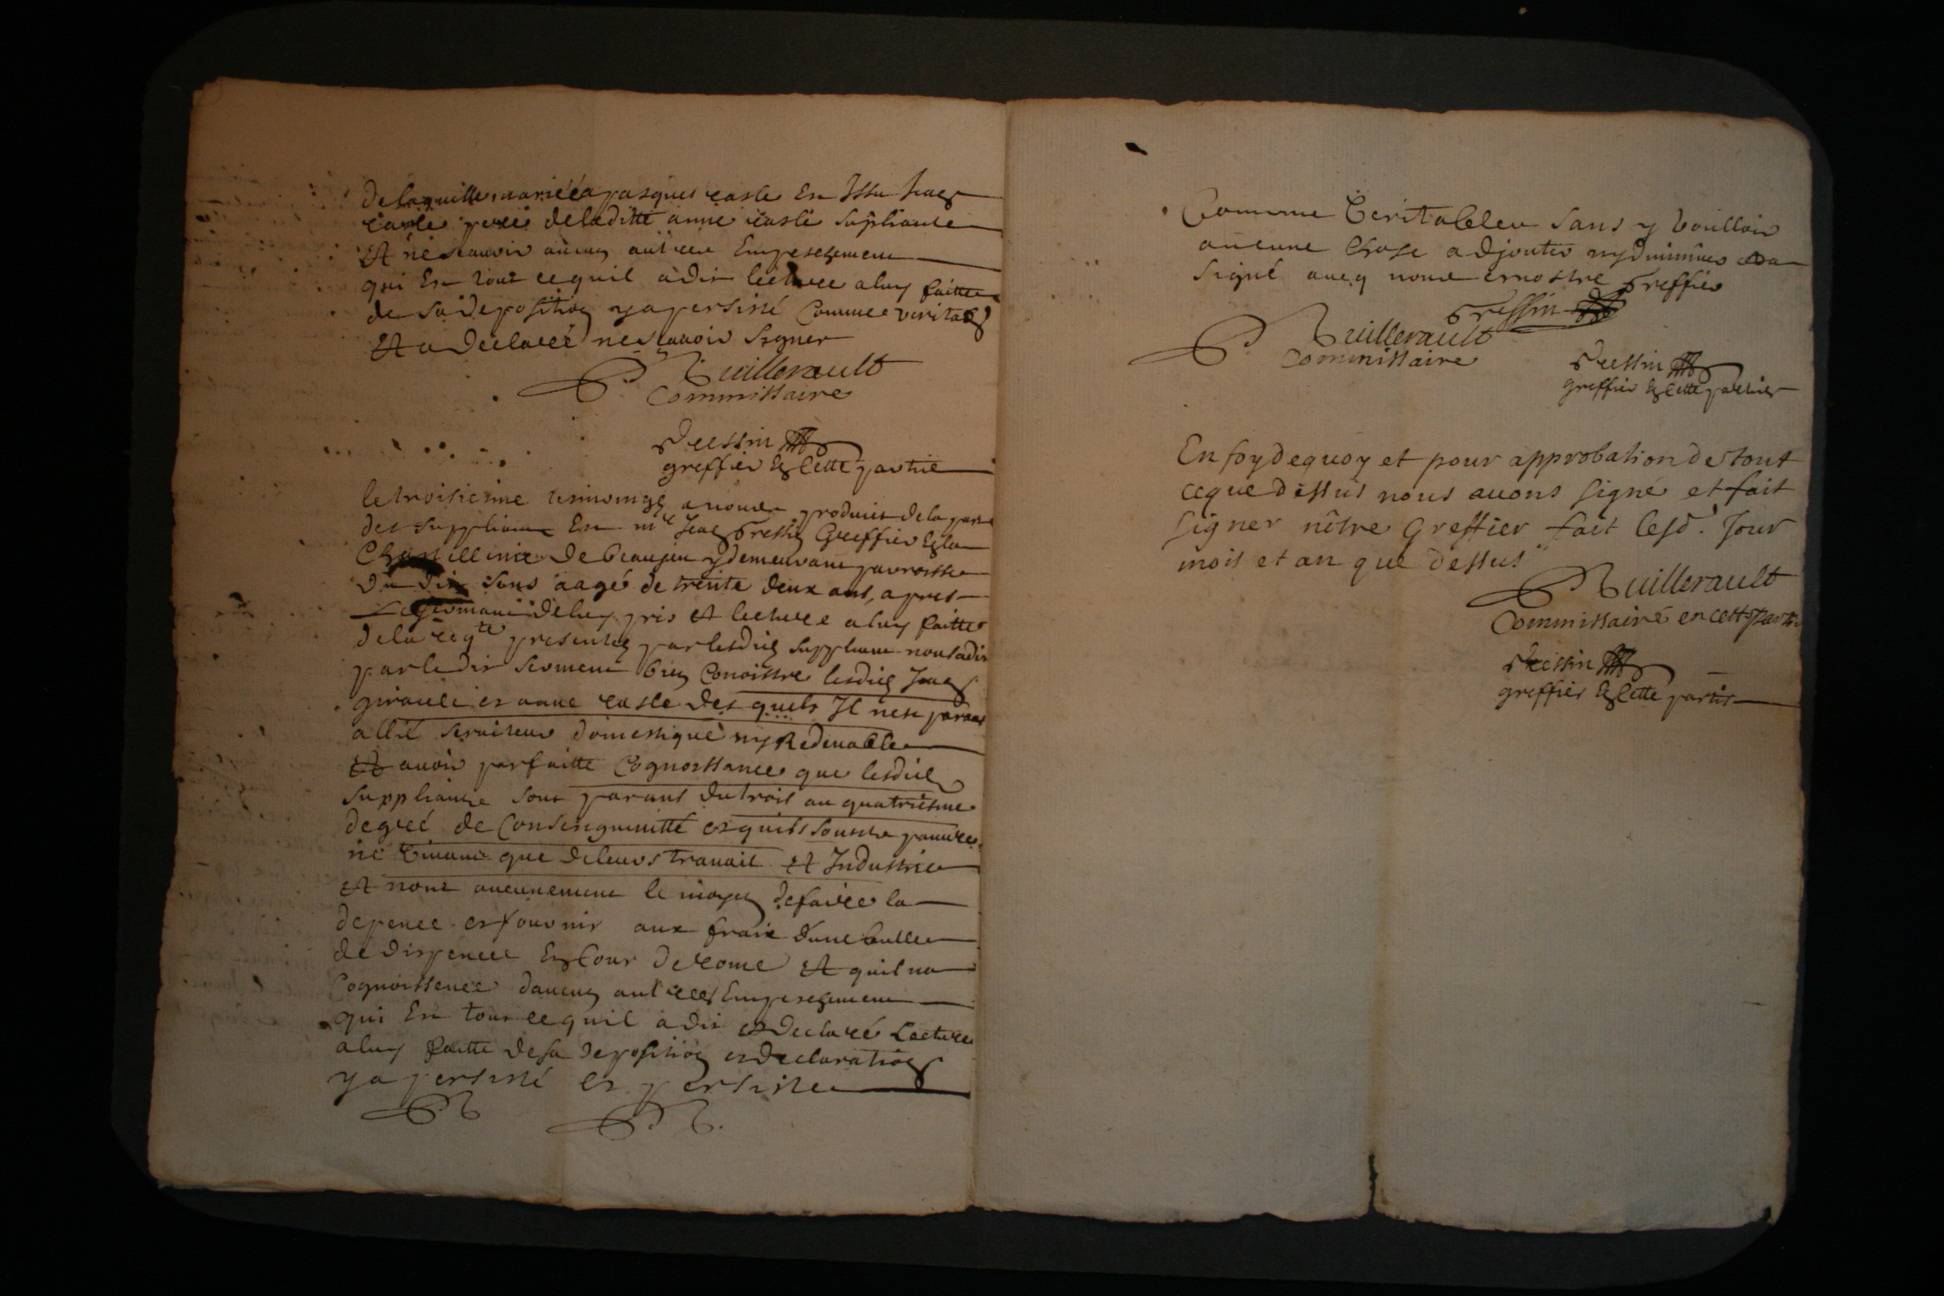 de laquelle mariée a jasques caste Est Issu Jean
caste pere deladitte anne caste supliante
Et ne scauoir aucun autre Empeschement
qui Est tout ce quil a dit lecture a luy faitte
de sa deposition y a persisté Comme veritable
Et a declaré ne scauoir signer
Vuillerault
Commissaire
Pressin
greffier En Cette partie
le troisiesme tesmoing a nous produit de la part
des suppliants Est me Jean Pressin Greffier En la
Chastellenie de beaujeu y demeurant parroisse
dudit sens aagé de trente deux ans, apres
serment de luy pris Et lecture a luy faitte
de la reqte presentée par lesdits suppliants nous a dit
par ledit serment bien Conoistre lesdits Jean
girault et anne caste desquels Il nest parant
allié seruiteur domestique ny Redeuable
Et auoir parfaitte Cognoissance que lesdits
suppliants sont parants du trois au quatriesme
degreé de Consenguinitté et quils sont pauures
ne viuant que de leurs trauail Et Industrie
Et nont aucunement le moyen de faire la
depence et fournir aux fraix dune bulle
de dispence En Cour de rome Et quil na
Cognoissence daucun autres Empeschement
qui Est tout ce quil a dit et declaré Lecture
a luy faitte de sa deposition et declaration
y a persisté et persiste
Comme veritable sans y vouloir
aucune chose adjouter ny diminuer et a
signé aueq nous et nostre greffier
Pressin
Vuillerault
Commissaire
Pressin
greffier En Cette partie
En foy dequoy et pour approbation de tout
ceque dessus nous auons signé et fait
signer nôtre Greffier fait lesd. Jour
mois et an que dessus
Vuillerault
Commissaire en cette partie
Pressin
greffier En Cette partie